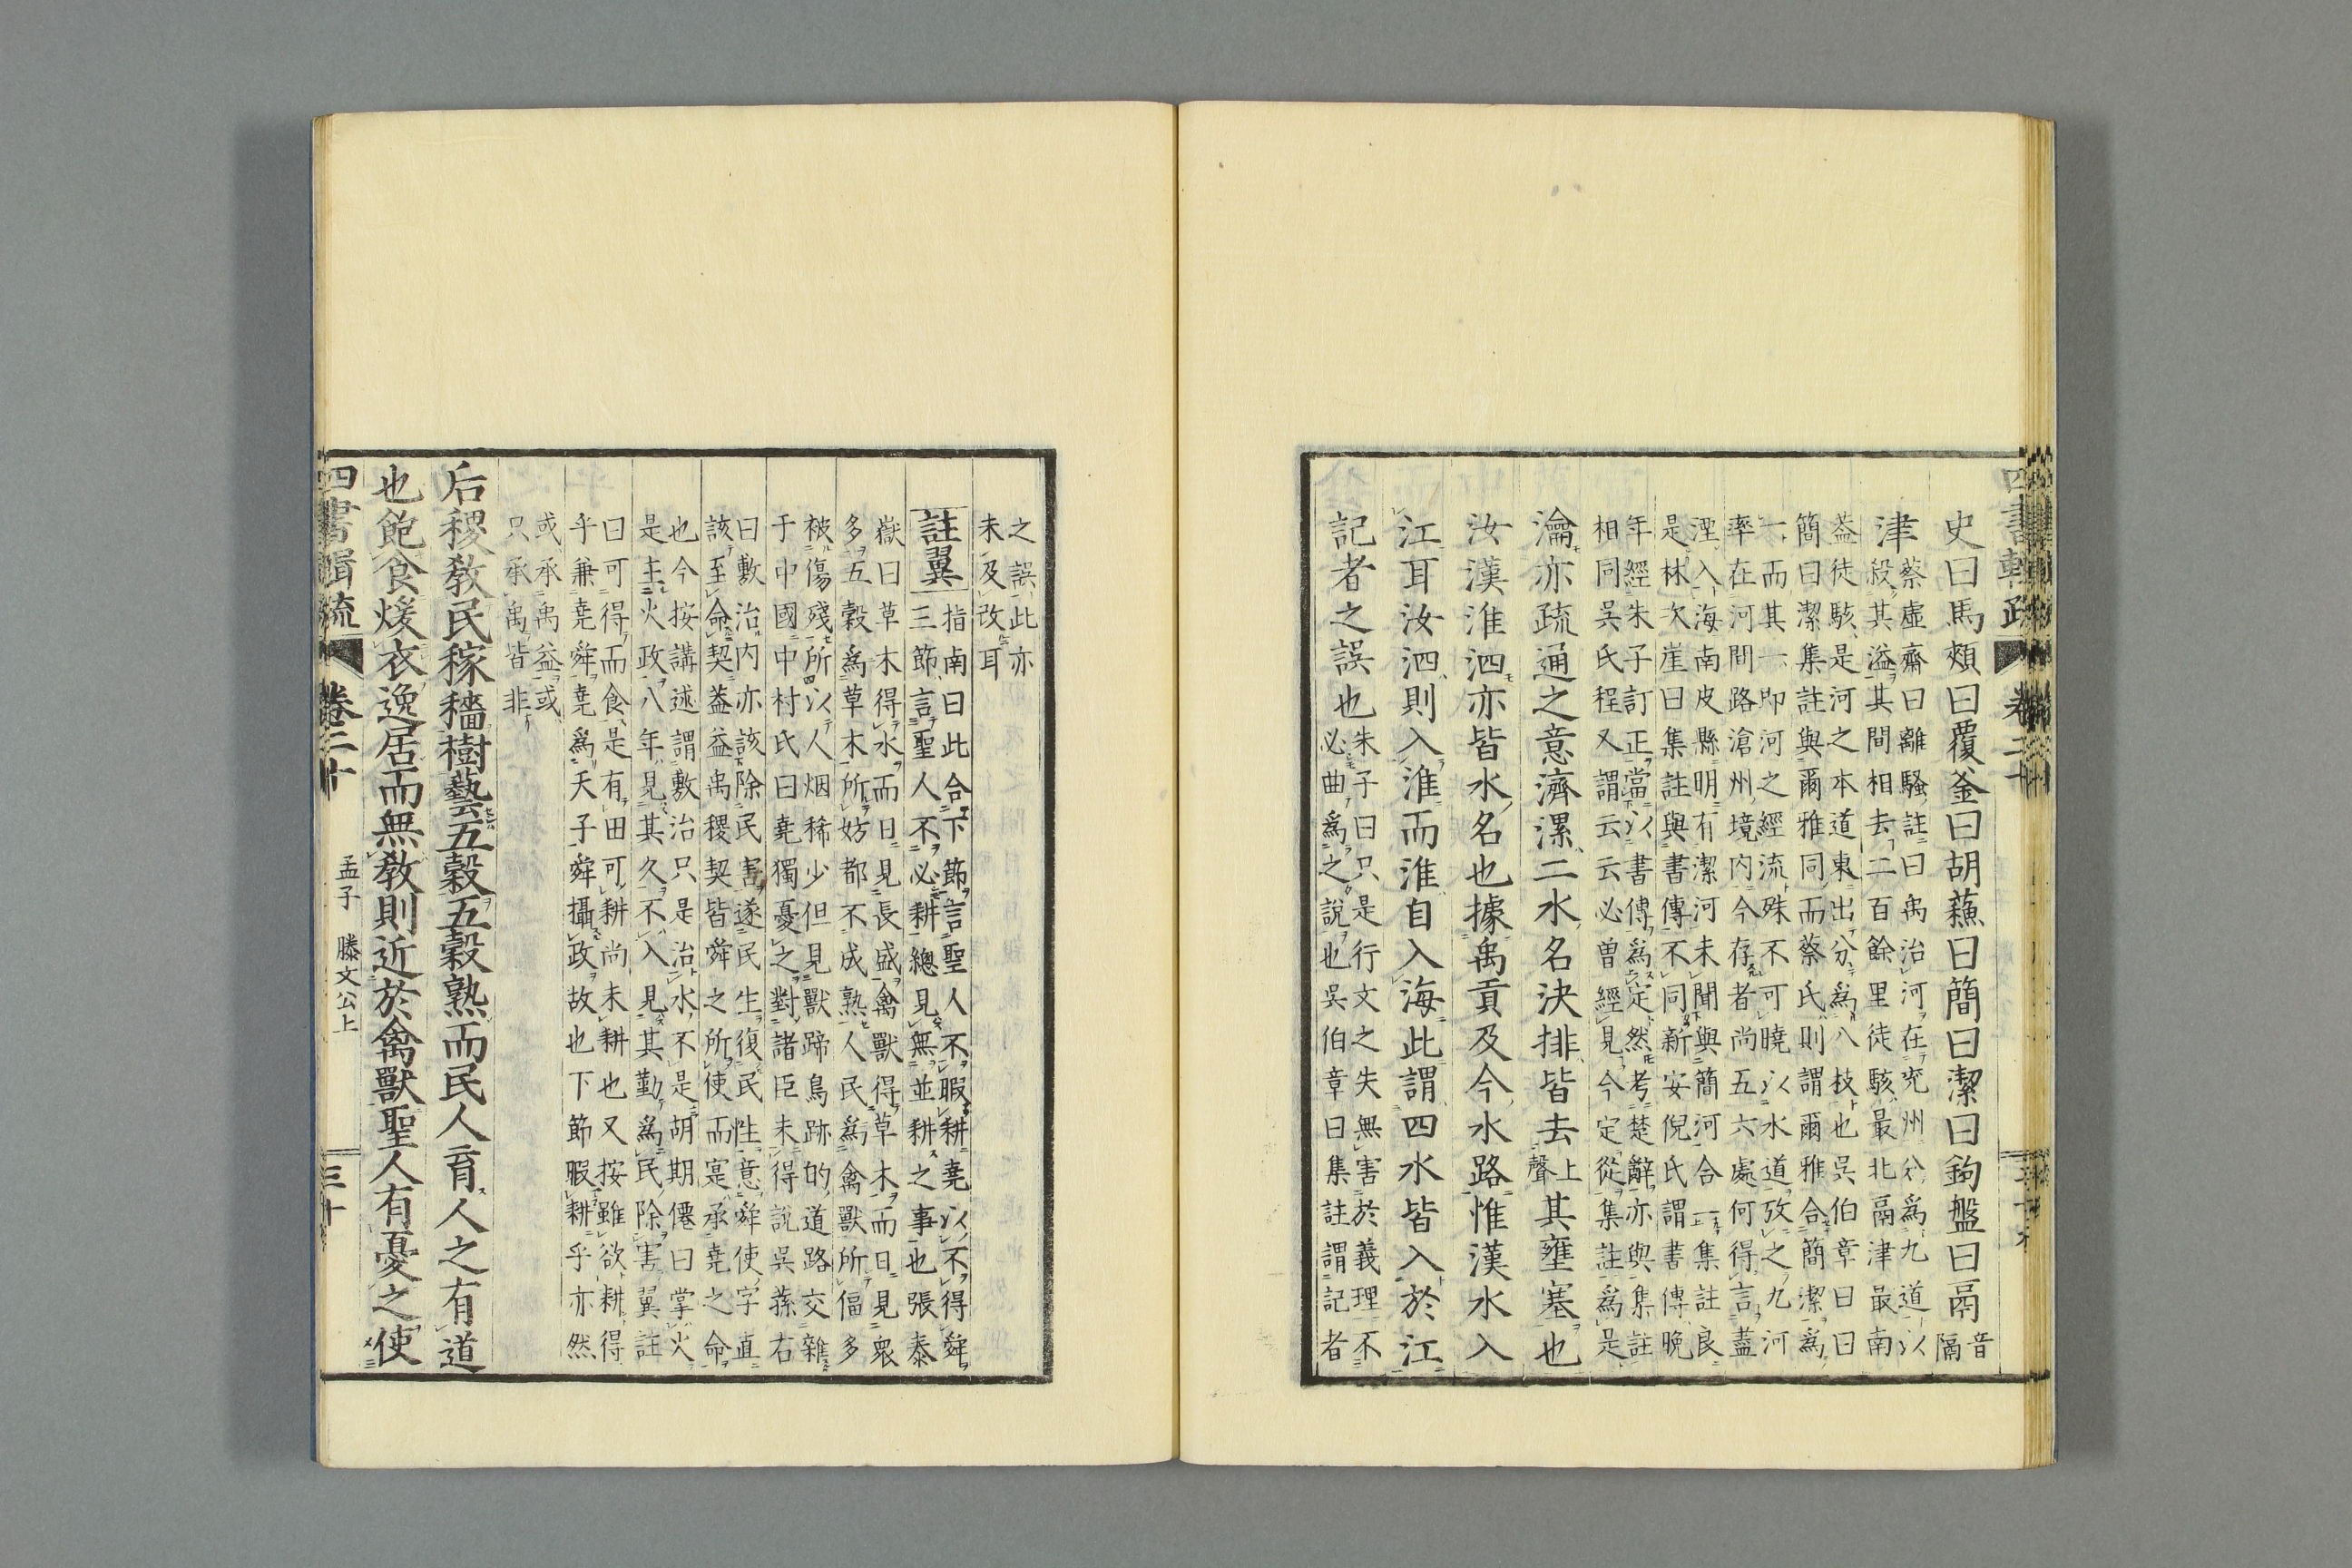 史曰馬頰曰覆釜曰胡蘇曰簡曰潔曰鉤盤曰鬲音隔
津蔡虛齋曰離騷註曰禹治河在兖州分爲九道以
殺其溢其間相去二百餘里徒駭最北鬲津最南
葢徒駭是河之本道東出分爲八枝也吳伯章曰曰
簡曰潔集註與爾雅同而蔡氏則謂爾雅合簡潔爲
一而其一即河之經流殊不可曉以水道攷之九河
率在河間路滄州境內今存者尚五六處何得言蓋
湮入海南皮縣明有潔河未聞與簡河合一集註良
是林次崖曰集註與書傳不同新安倪氏謂書傳晚
年經朱子訂正當以書傳爲定然考楚辭亦與集註
相同吳氏程又謂云云必曽經見今定從集註爲是
瀹亦疏通之意濟漯二水名決排皆去上聲其壅塞也
汝漢淮泗亦皆水名也據禹貢及今水路惟漢水入
江耳汝泗則入淮而淮自入海此謂四水皆入於江
記者之誤也朱子曰只是行文之失無害於義理不
必曲爲之說也吳伯章曰集註謂記者
四書輯疏 卷二十
之誤此亦
未及改耳
註翼指南曰此合下節言聖人不暇耕堯以不得舜
三節言聖人不必耕總見無並耕之事也張泰
嶽曰草木得水而日見長盛禽獸得草木而日見衆
多五穀爲草木所妨都不成熟人民爲禽獸所偪多
被傷殘所以人烟稀少但見獸蹄鳥跡的道路交雜
于中國中村氏曰堯獨憂之對諸臣未得說吳蓀右
曰敷治內亦該除民害遂民生復民性意舜使字直
該至命契葢益禹稷契皆舜之所使而寔承堯之命
也今按講述謂敷治只是治水不是胡期僊曰掌火
是主火政八年見其久不入見其勤爲民除害翼註
曰可得而食是有田可耕尚未耕也又按雖欲耕得
乎兼堯舜堯爲天子舜攝政故也下節暇耕乎亦然
或承禹益或
只承禹皆非
后稷敎民稼穡樹藝五穀五穀熟而民人育人之有道
也飽食煖衣逸居而無敎則近於禽獸聖人有憂之使
四書輯疏 卷二十 孟子 滕文公上 三十